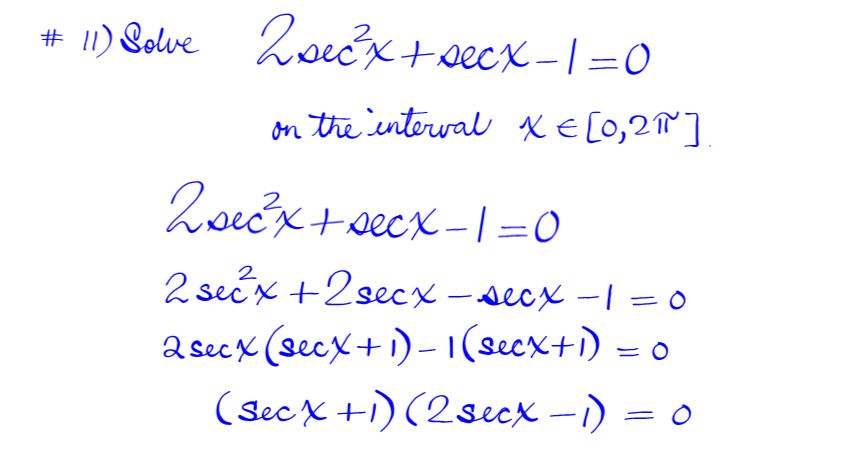 # 11) Solve 2sec²x + secx - 1 = 0
on the interval x ∈ [0, 2π]
2sec²x + secx - 1 = 0
2sec²x + 2secx - secx - 1 = 0
2secx(secx + 1) - 1(secx + 1) = 0
(secx + 1)(2secx - 1) = 0